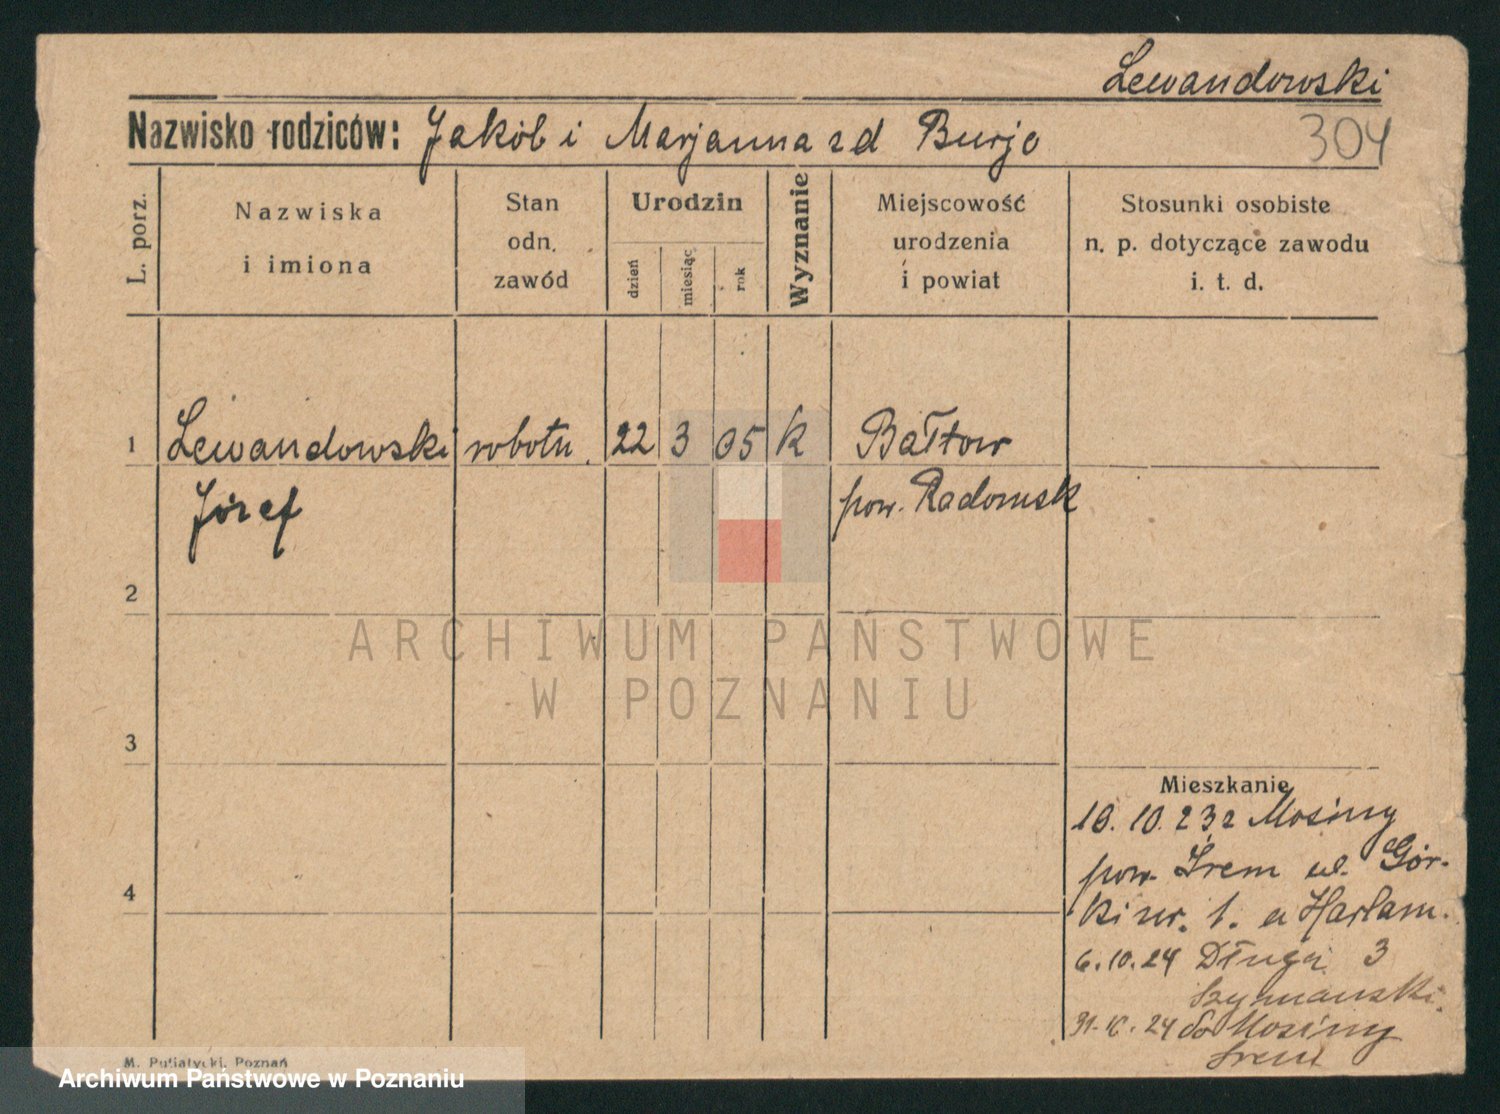 Lewandowski
Nazwisko rodziców: Jakób i Marjanna z d Burjo
304
L. porz.
Nazwiska
i imiona
Stan
odn.
zawód
Urodzin
dzień
miesiąc
rok
Wyznanie
Miejscowość
urodzenia
i powiat
Stosunki osobiste
n. p. dotyczące zawodu
i. t. d.
1 Lewandowski robotn. 22 3 05 k Bałtow
Józef pow. Radomsk
2
3
4
Mieszkanie
10. 23 z Mosiny
pow. Śrem ul. Gór-
ki nr. 1. a Harłam.
6.10.24 Długa 3
Szymanski.
24 do Mosiny
Śrem
ARCHIWUM PAŃSTWOWE
W POZNANIU
M. Putiatycki, Poznań
Archiwum Państwowe w Poznaniu